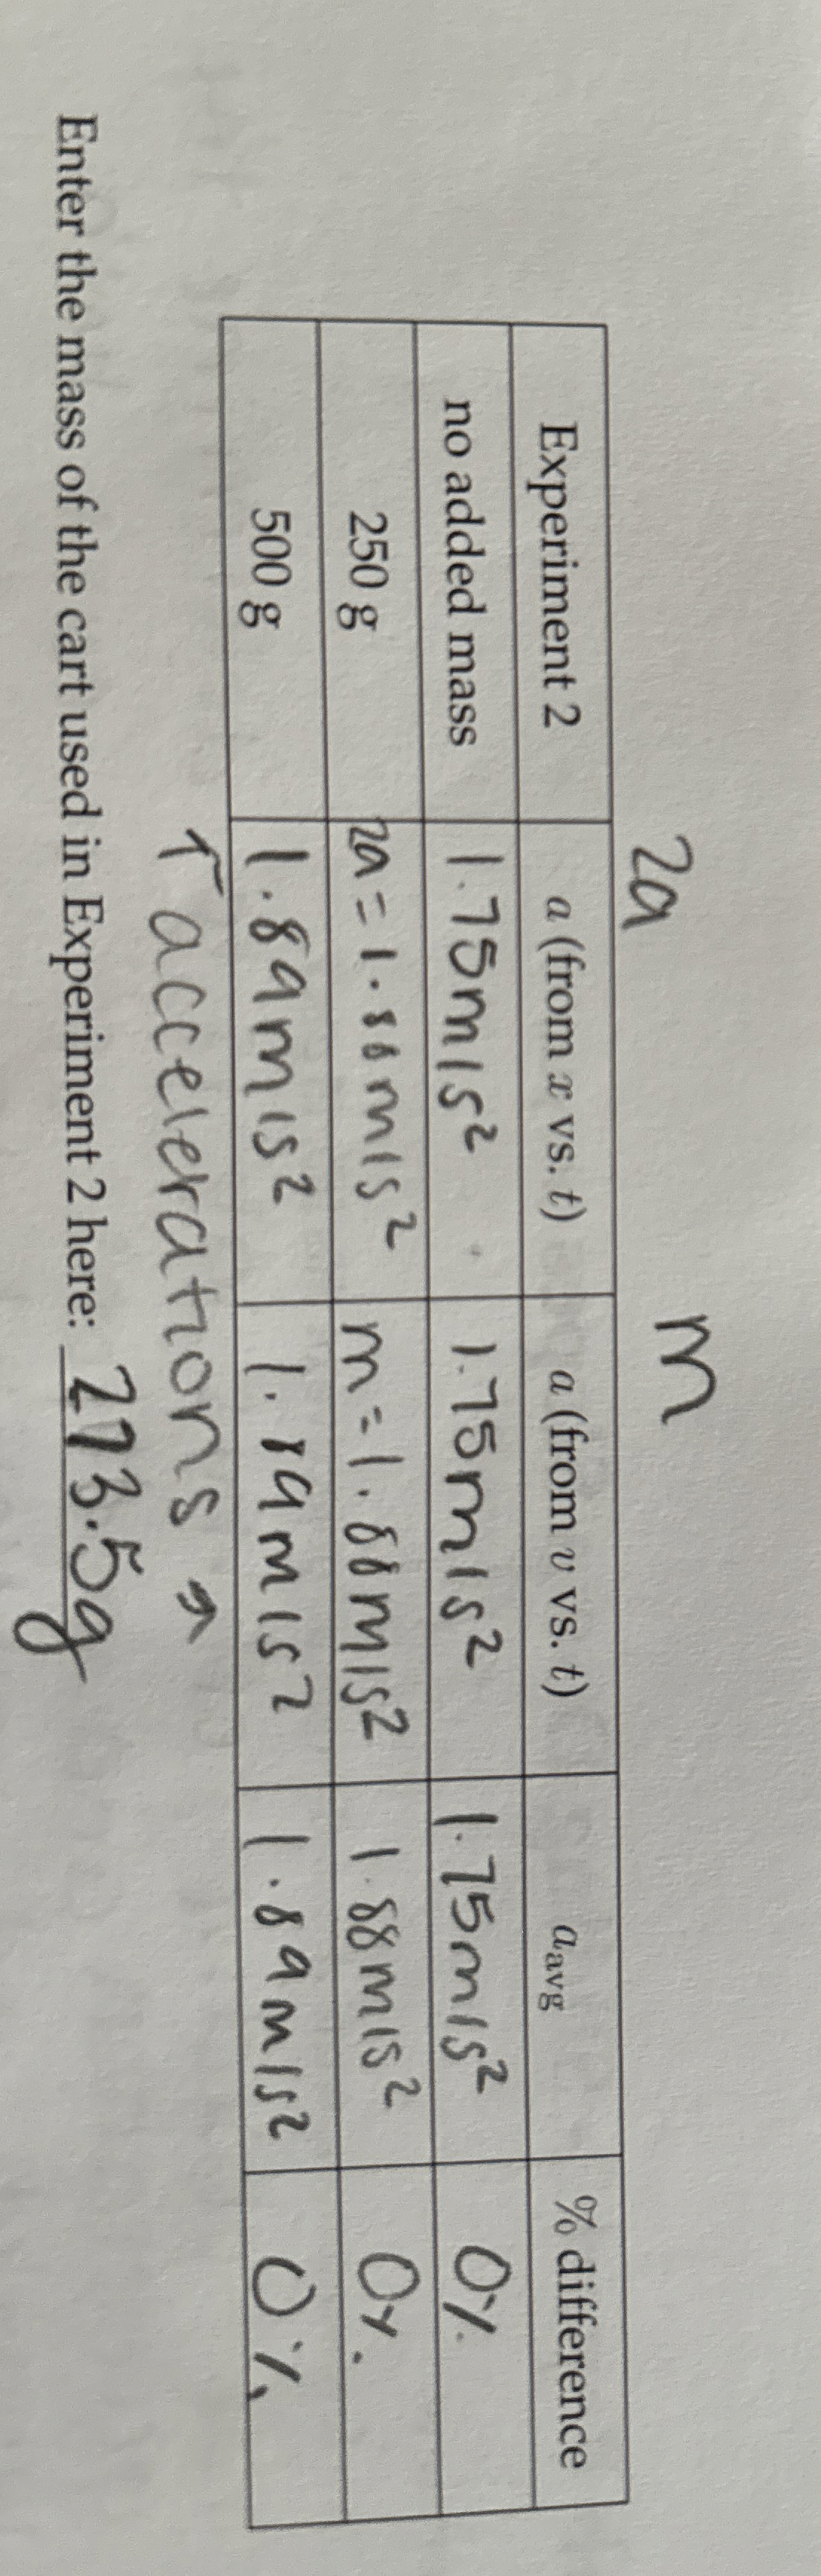 2a m
Experiment 2 a (from x vs. t) a (from v vs. t) aavg % difference
no added mass 1.75m/s² 1.75m/s² 1.75m/s² 0%
250 g 2a=1.88m/s² m=1.88m/s² 1.88m/s² 0%.
500 g 1.89m/s² 1.89m/s² 1.89m/s² 0%
↑ accelerations ↗
Enter the mass of the cart used in Experiment 2 here: 273.5g